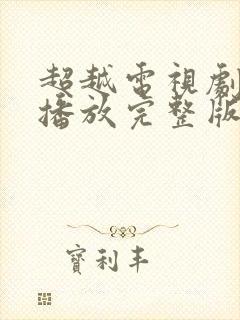 超越電視劇
播放完整版
寶利丰